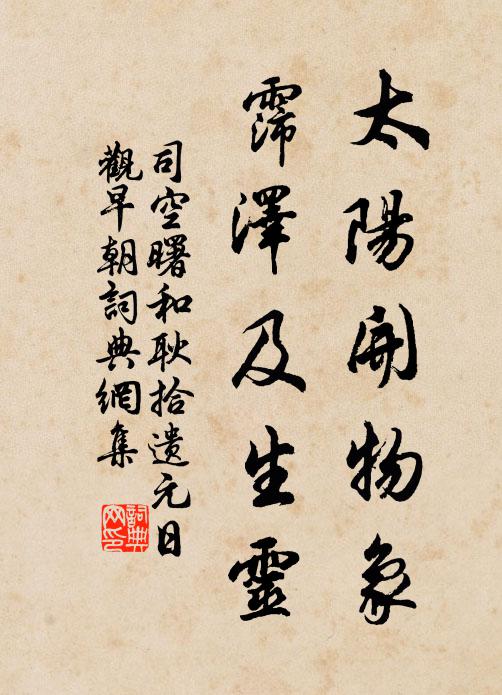 太陽開物象
霈澤及生靈
司空曙和耿拾遺元日
觀早朝詞典網集
詞典
网印